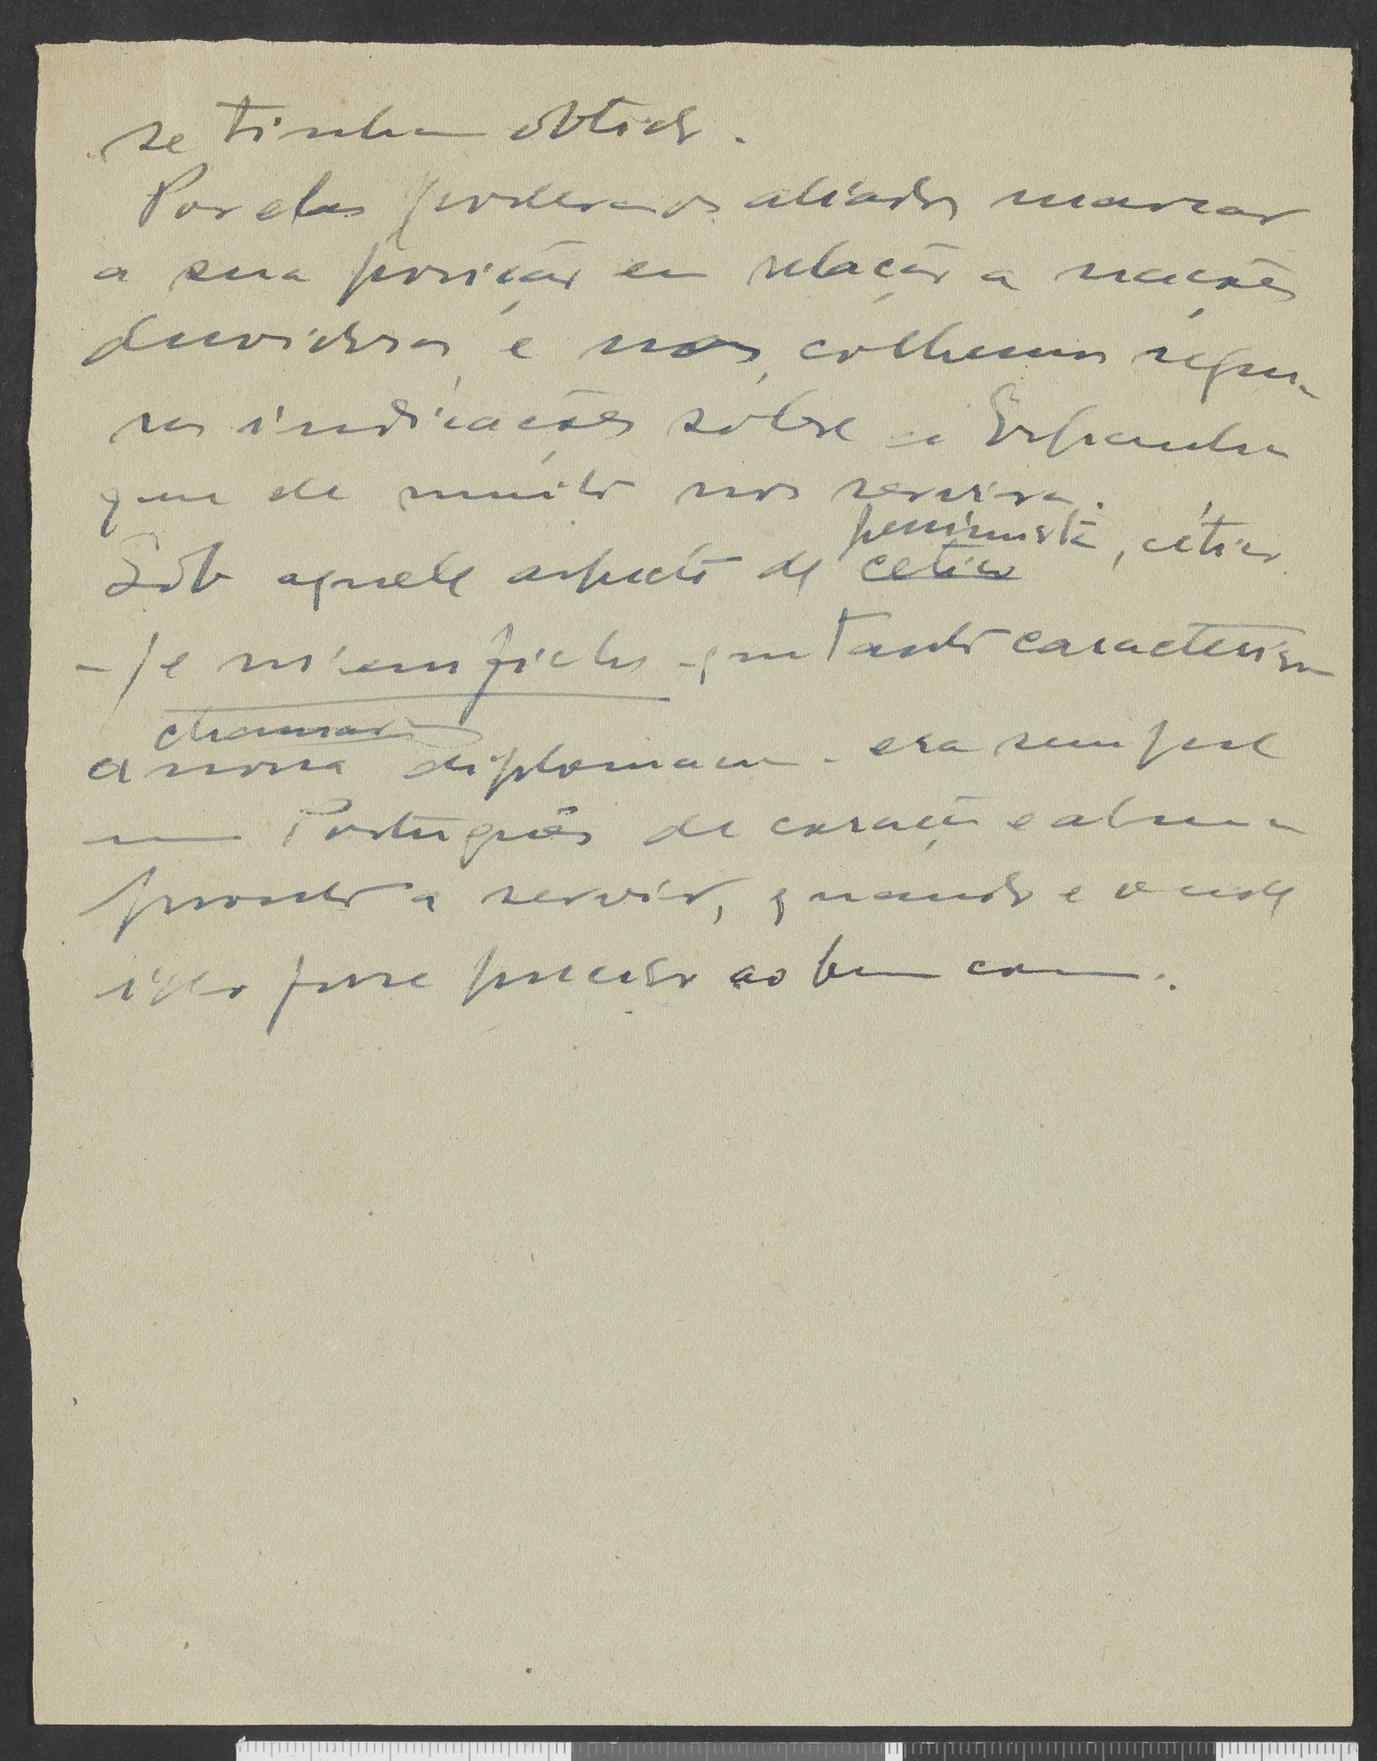 se tinham obtido.
Por elas poderam os aliados marcar
a sua posição em relação a nações
duvidosas e nós, colhemos segu-
ras indicações sôbre a Espanha
que de muito nos serviram.
pessimista, cético
Sob aquele aspecto de cético
- je m'en fiche - que tanto caracterisa
a nossa diplomacia - era sempre
um Português de coração e alma
pronto a servir, quando e onde
isso fosse preciso ao bem com.